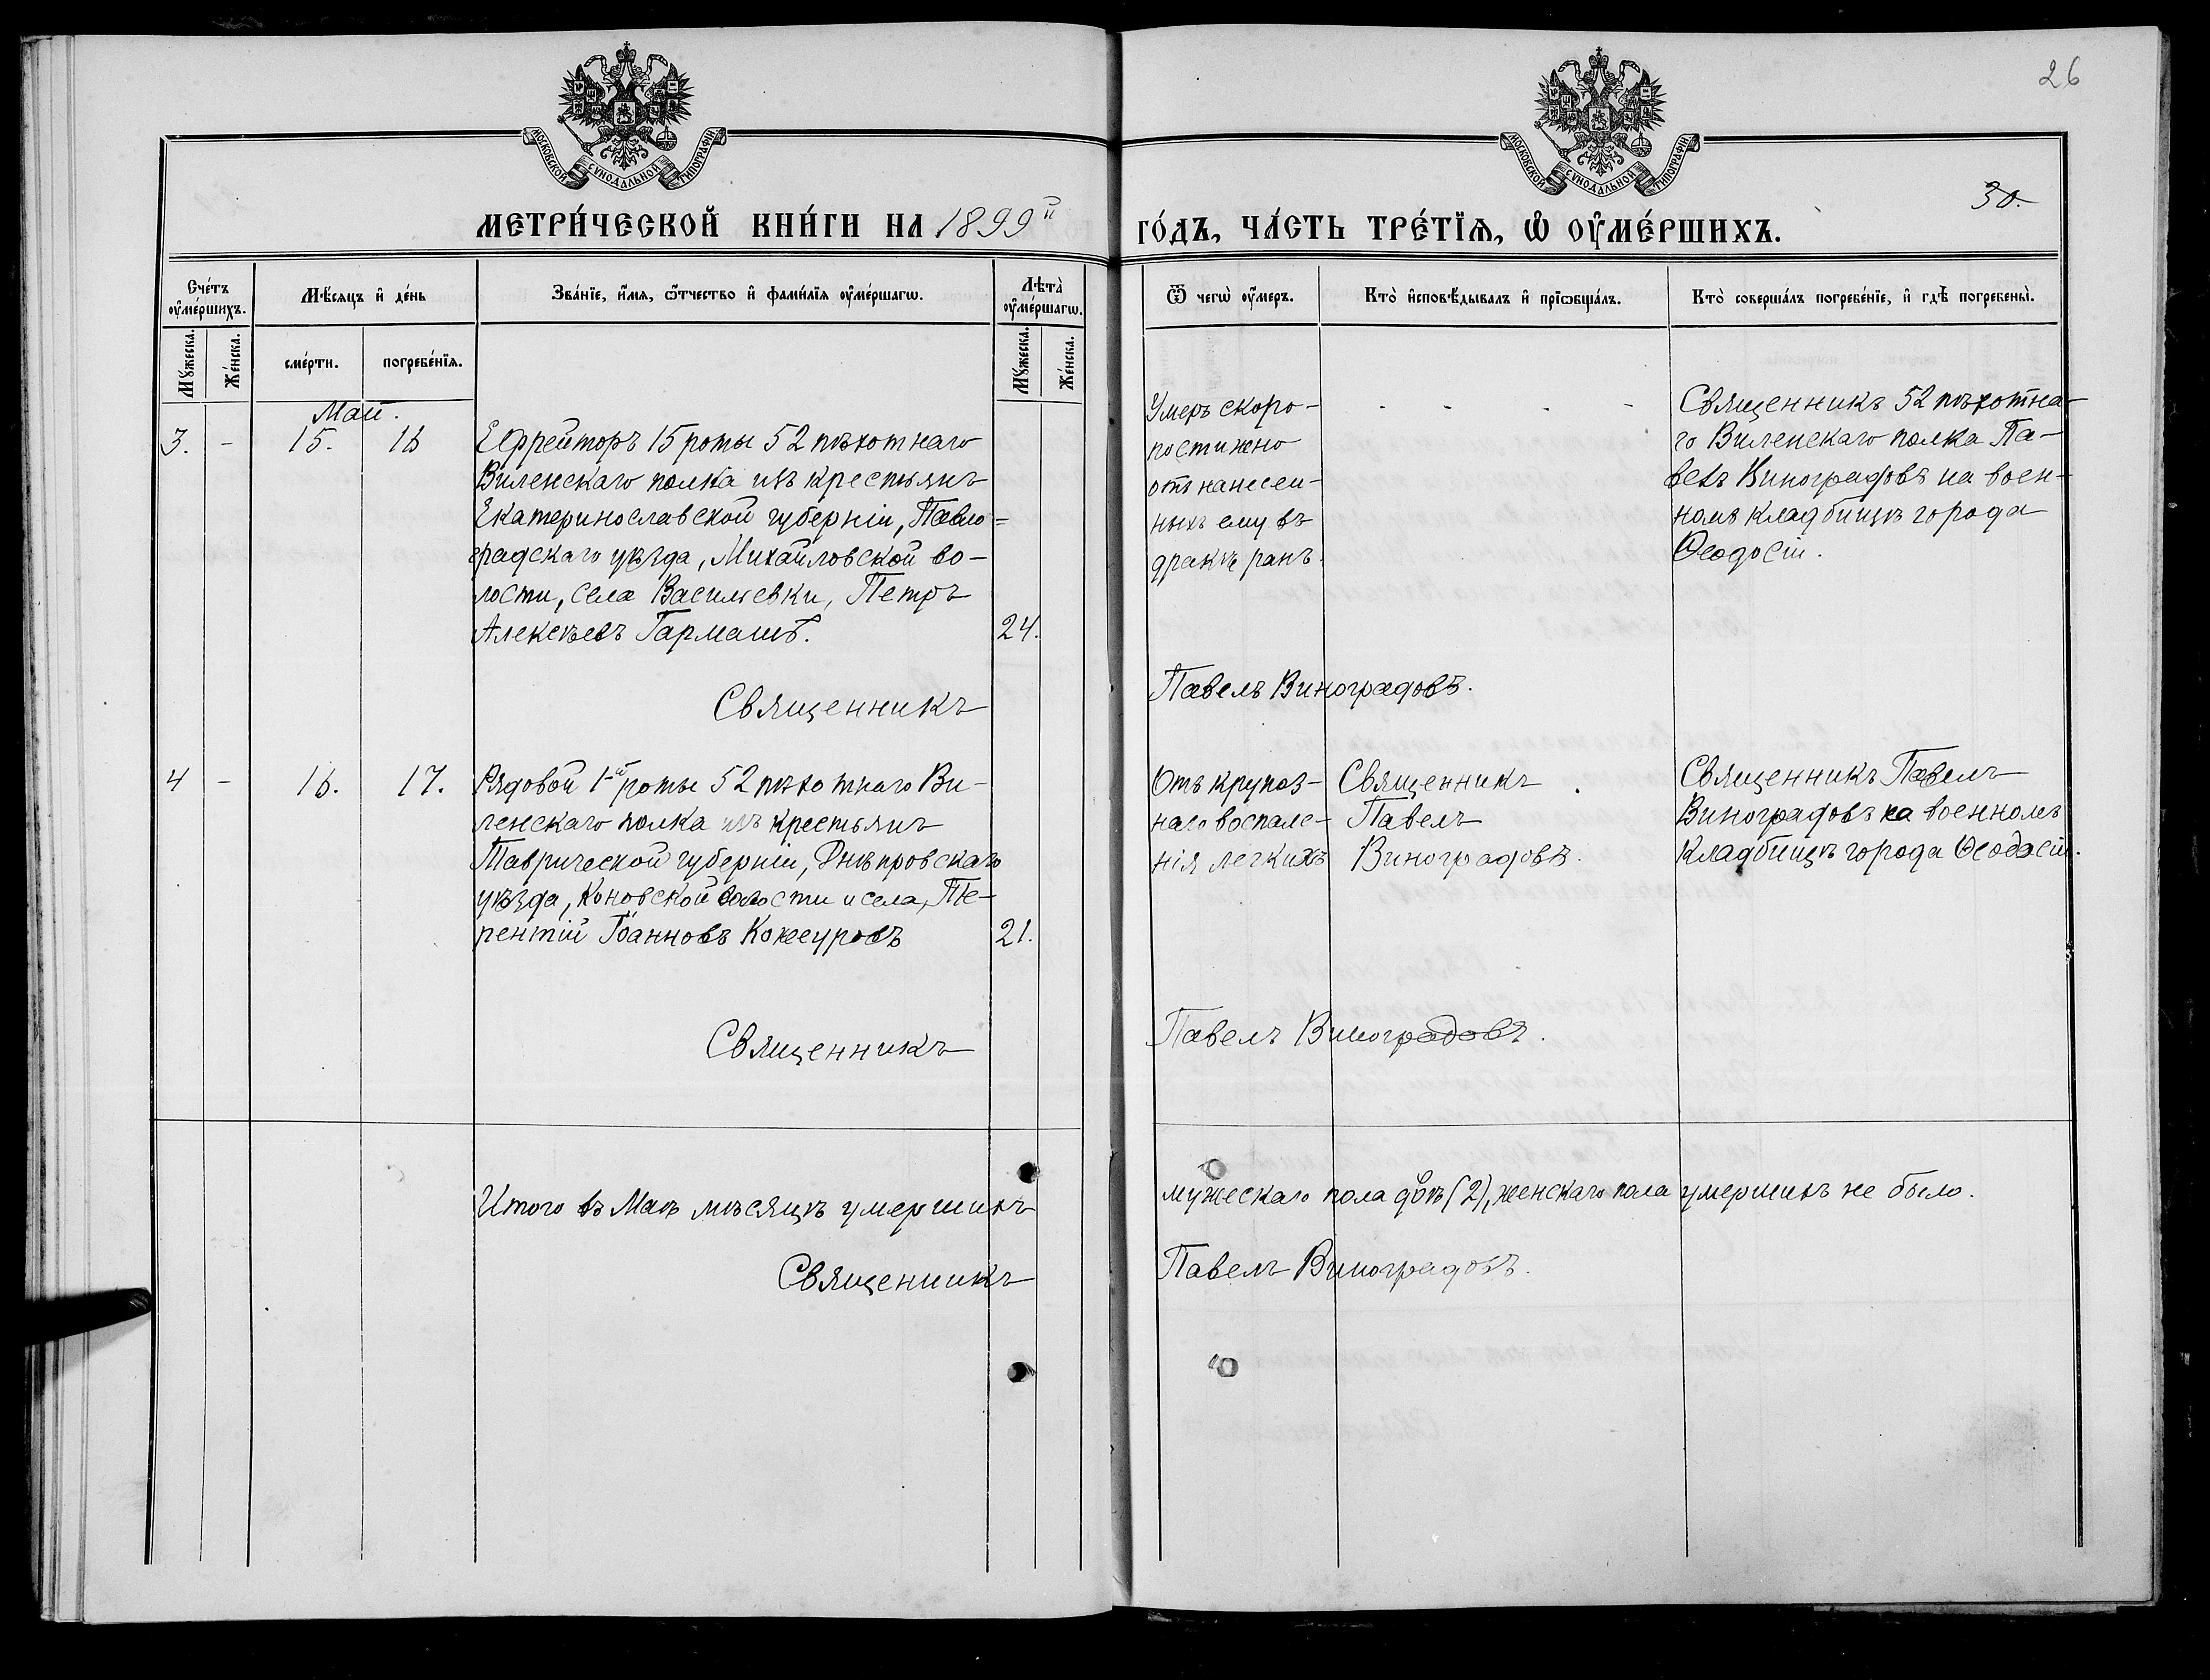 26
30.
МОСКОВСКОЙ СѴНОДАЛЬНОЙ ТИПОГРАФІИ.
МОСКОВСКОЙ СѴНОДАЛЬНОЙ ТИПОГРАФІИ.
МЕТРИ́ЧЕСКОЙ КНИ́ГИ НА 1899й
ГО́ДЪ, ЧА́СТЬ ТРЕ́ТЇѦ, Ѡ҆ ОУ҆МЕ́РШИХЪ.
Сче́тъ оу҆ме́ршихъ.
Мѣ́сяцъ и҆ де́нь
Зва́нїе, и҆́мя, ѿтчество и҆ фами́лїя оу҆ме́ршагѡ.
Лѣта̀ оу҆ме́ршагѡ.
Му́жеска.
Же́нска.
сме́рти.
погребе́нїя.
Му́жеска.
Же́нска.
Ѿ чегѡ̀ оу҆́меръ.
Кто̀ и҆сповѣ́дывалъ и҆ прїѡбща́лъ.
Кто̀ соверша́лъ погребе́нїе, и҆ гдѣ̀ погребены̀.
Май.
3. - 15. 16
Ефрейторъ 15 роты 52 пѣхотнаго
Виленскаго полка изъ крестьянъ
Екатеринославской губерніи, Павло=
градскаго уѣзда, Михайловской во-
лости, села Васильевки, Петръ
Алексѣевъ Гармашъ. 24.
Священникъ
Умеръ скоро-
постижно
отъ нанесен-
ныхъ ему въ
дракѣ ранъ.
- - - -
Священникъ 52 пѣхотна-
го Виленскаго полка Па-
велъ Виноградовъ на воен-
номъ кладбищѣ города
Ѳеодосіи.
Павелъ Виноградовъ.
4 - 16. 17.
Рядовой 1-й роты 52 пѣхотнаго Ви-
ленскаго полка изъ крестьянъ
Таврической губерніи, Днѣпровскаго
уѣзда, Коновской волости и села, Те-
рентій Іоанновъ Кожеуровъ 21.
Священникъ
Отъ крупоз-
наго воспале-
нія легкихъ
Священникъ
Павелъ
Виноградовъ.
Священникъ Павелъ
Виноградовъ на военномъ
кладбищѣ города Ѳеодосіи.
Павелъ Виноградовъ.
Итого въ Маѣ мѣсяцѣ умершихъ
мужескаго пола двое (2), женскаго пола умершихъ не было.
Священникъ
Павелъ Виноградовъ.